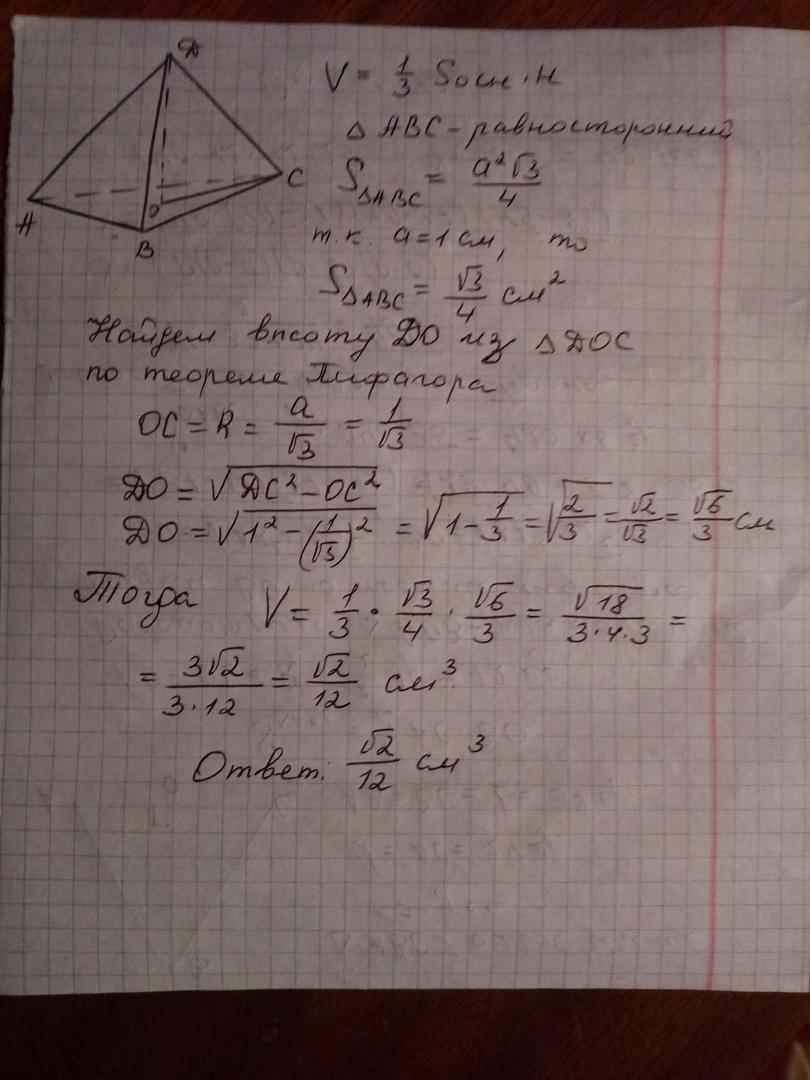 D
A
B
O
C
V = 1/3 Sосн · H
△ ABC - равносторонний
S△ABC = a²√3/4
т.к. a = 1 см, то
S△ABC = √3/4 см²
Найдем высоту DO из △ DOC
по теореме Пифагора
OC = R = a/√3 = 1/√3
DO = √(DC² - OC²)
DO = √(1² - (1/√3)²) = √(1 - 1/3) = √(2/3) = √2/√3 = √6/3 см
Тогда V = 1/3 · √3/4 · √6/3 = √18/(3·4·3) =
= 3√2/(3·12) = √2/12 см³.
Ответ: √2/12 см³